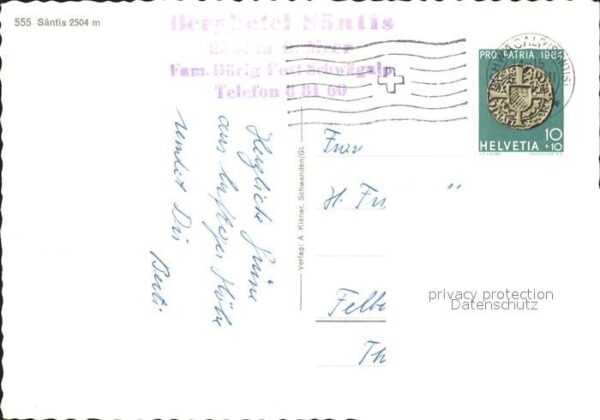 555 Säntis 2504 m
Berghotel Säntis
Fam. Dörig Post Schwägalp
Telefon 8 81 60
PRO PATRIA 1964
10
+10
HELVETIA
Herzliche Grüsse
aus luftiger Höhe
sendet Dir
Berti
Verlag: A. Kiener, Schwanden/GL
Frau
H. Fr
Felb
Th
privacy protection
Datenschutz